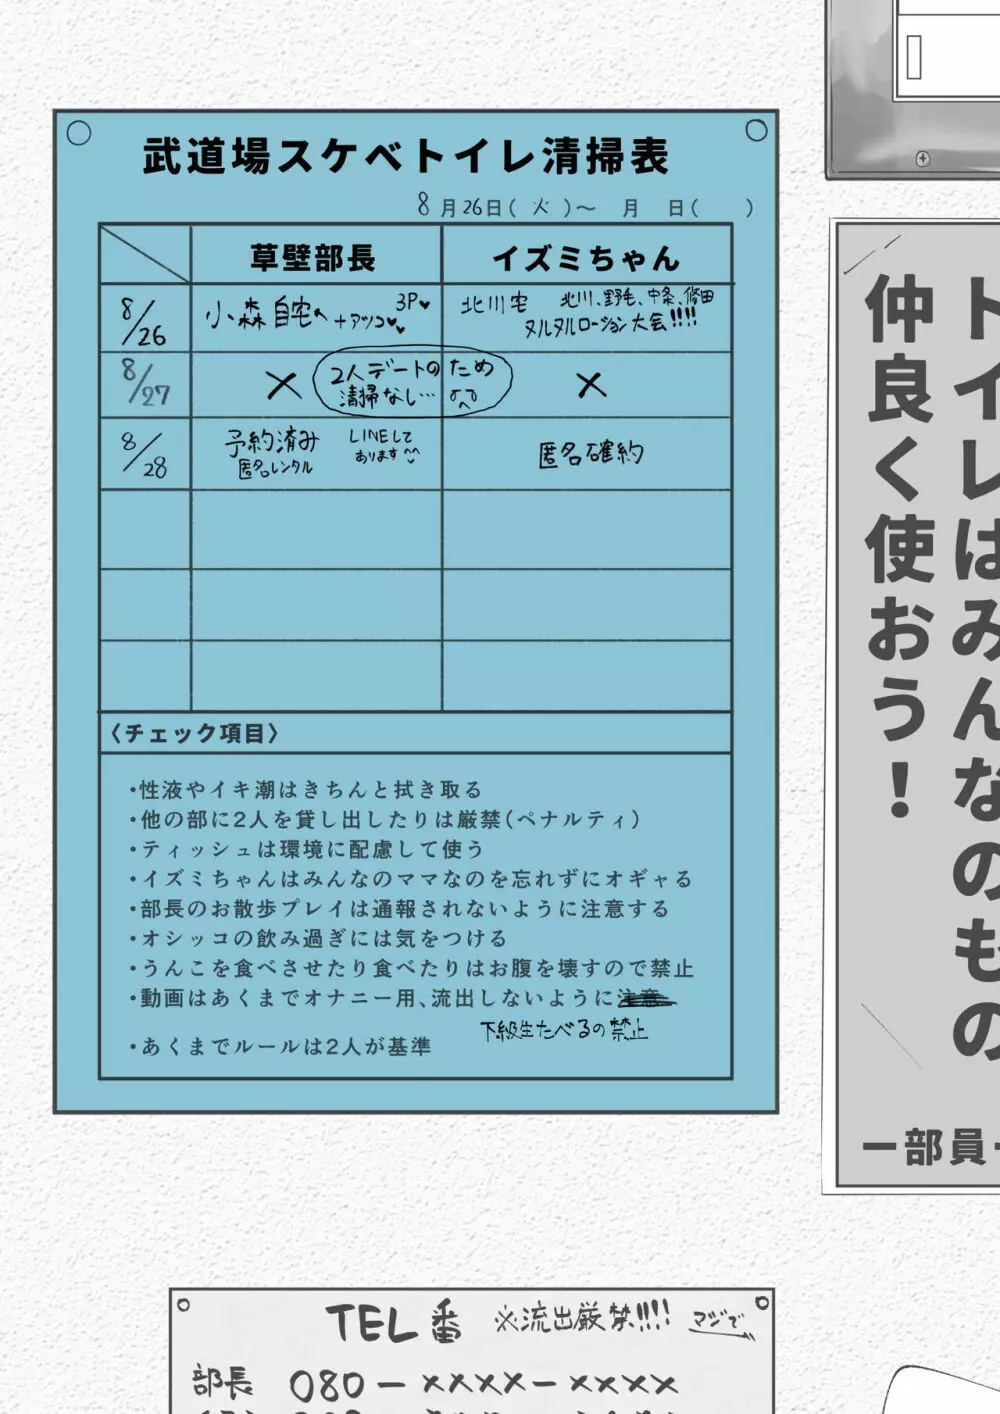 武道場スケベトイレ清掃表
8月26日(火)～ 月 日( )
草壁部長 イズミちゃん
8/26 小森自宅へ +アツコ 3P♥ 北川宅 北川、野毛、中条、修田
ヌルヌルローション大会!!!!
8/27 × 2人デートのため ×
清掃なし…
8/28 予約済み LINEして 匿名確約
匿名レンタル あります^^
〈チェック項目〉
・性液やイキ潮はきちんと拭き取る
・他の部に2人を貸し出したりは厳禁(ペナルティ)
・ティッシュは環境に配慮して使う
・イズミちゃんはみんなのママなのを忘れずにオギャる
・部長のお散歩プレイは通報されないように注意する
・オシッコの飲み過ぎには気をつける
・うんこを食べさせたり食べたりはお腹を壊すので禁止
・動画はあくまでオナニー用、流出しないように注意
下級生たべるの禁止
・あくまでルールは2人が基準
トイレはみんなのもの
仲良く使おう！
ー部員
TEL番 ※流出厳禁!!!! マジで
部長 080-××××-××××